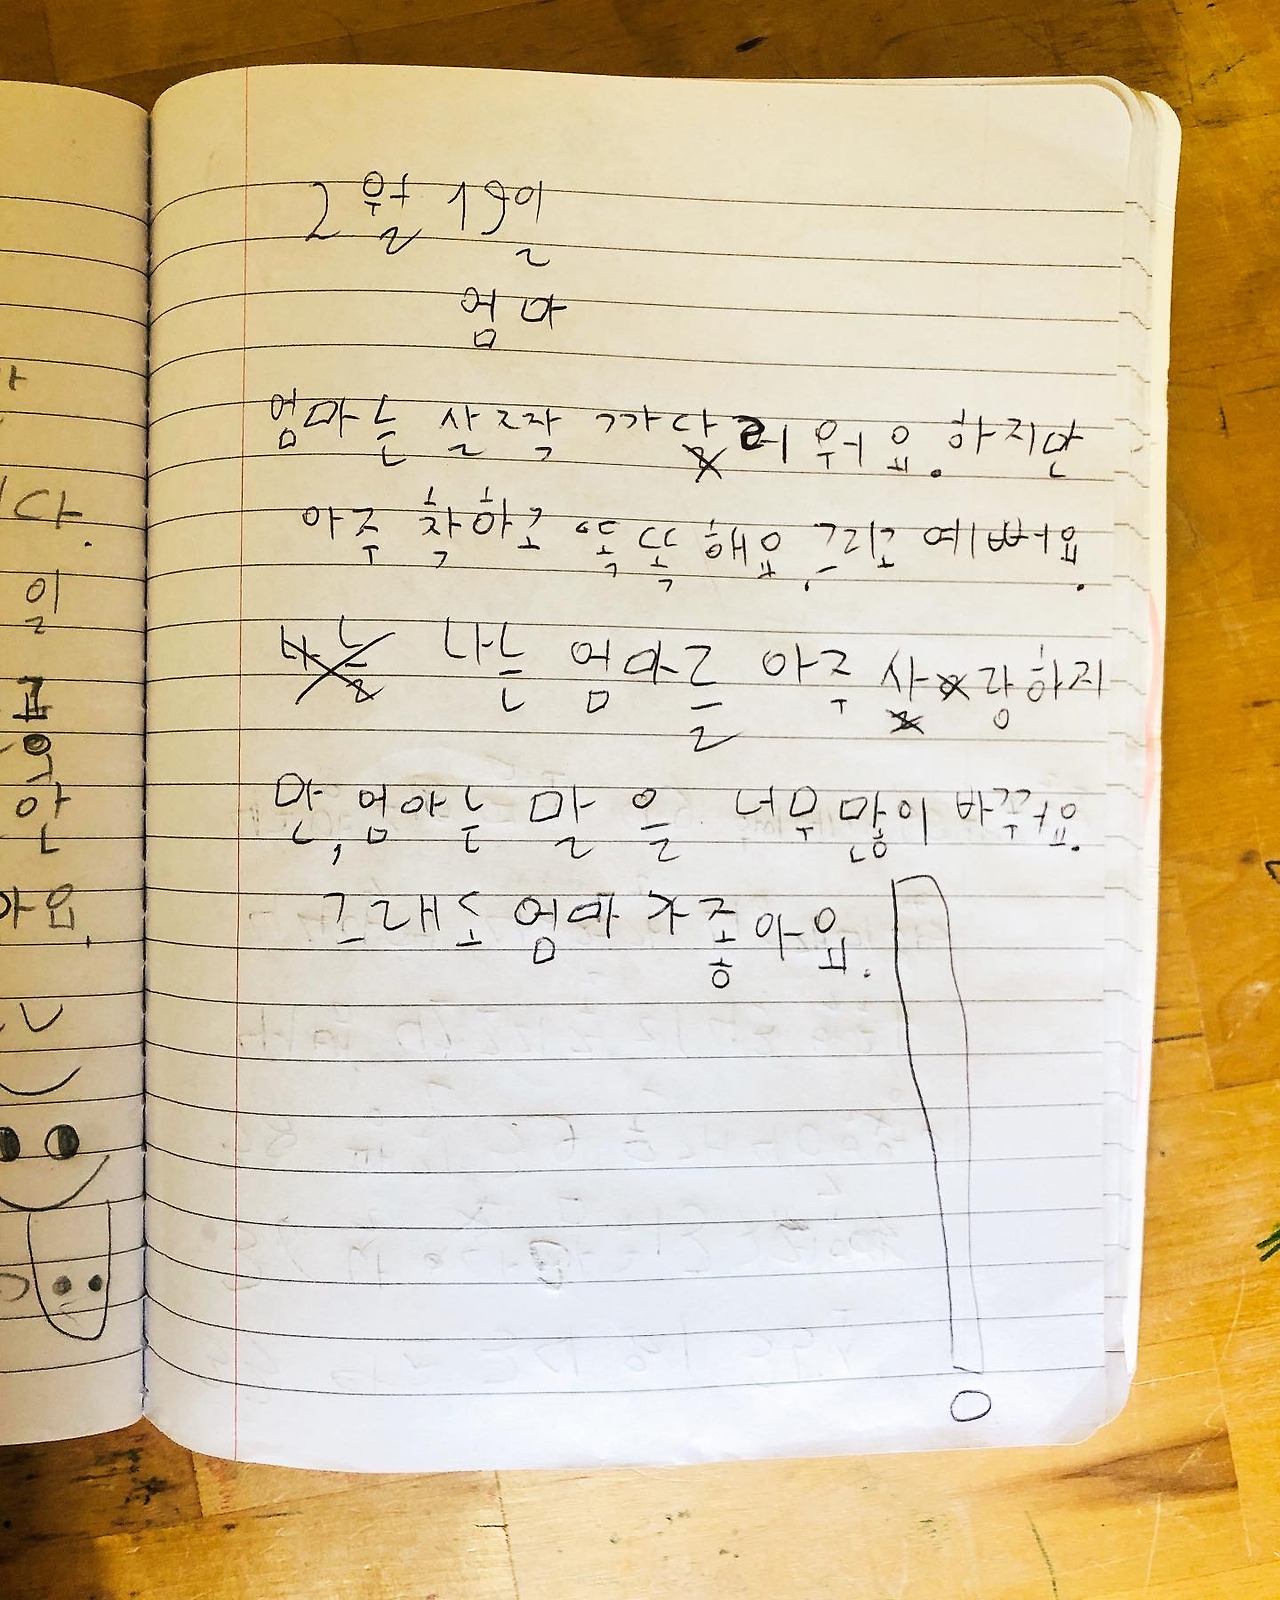 2월 19일
엄마
엄마는 살ㄹ작 까다러워요. 하지만
아주 착하고 똑똑해요. 그리고 예뻐요.
나는 엄마를 아주 사랑하지
만, 엄마는 말을 너무 많이 바꾸어요.
그래도 엄마가 좋아요.
다.
일